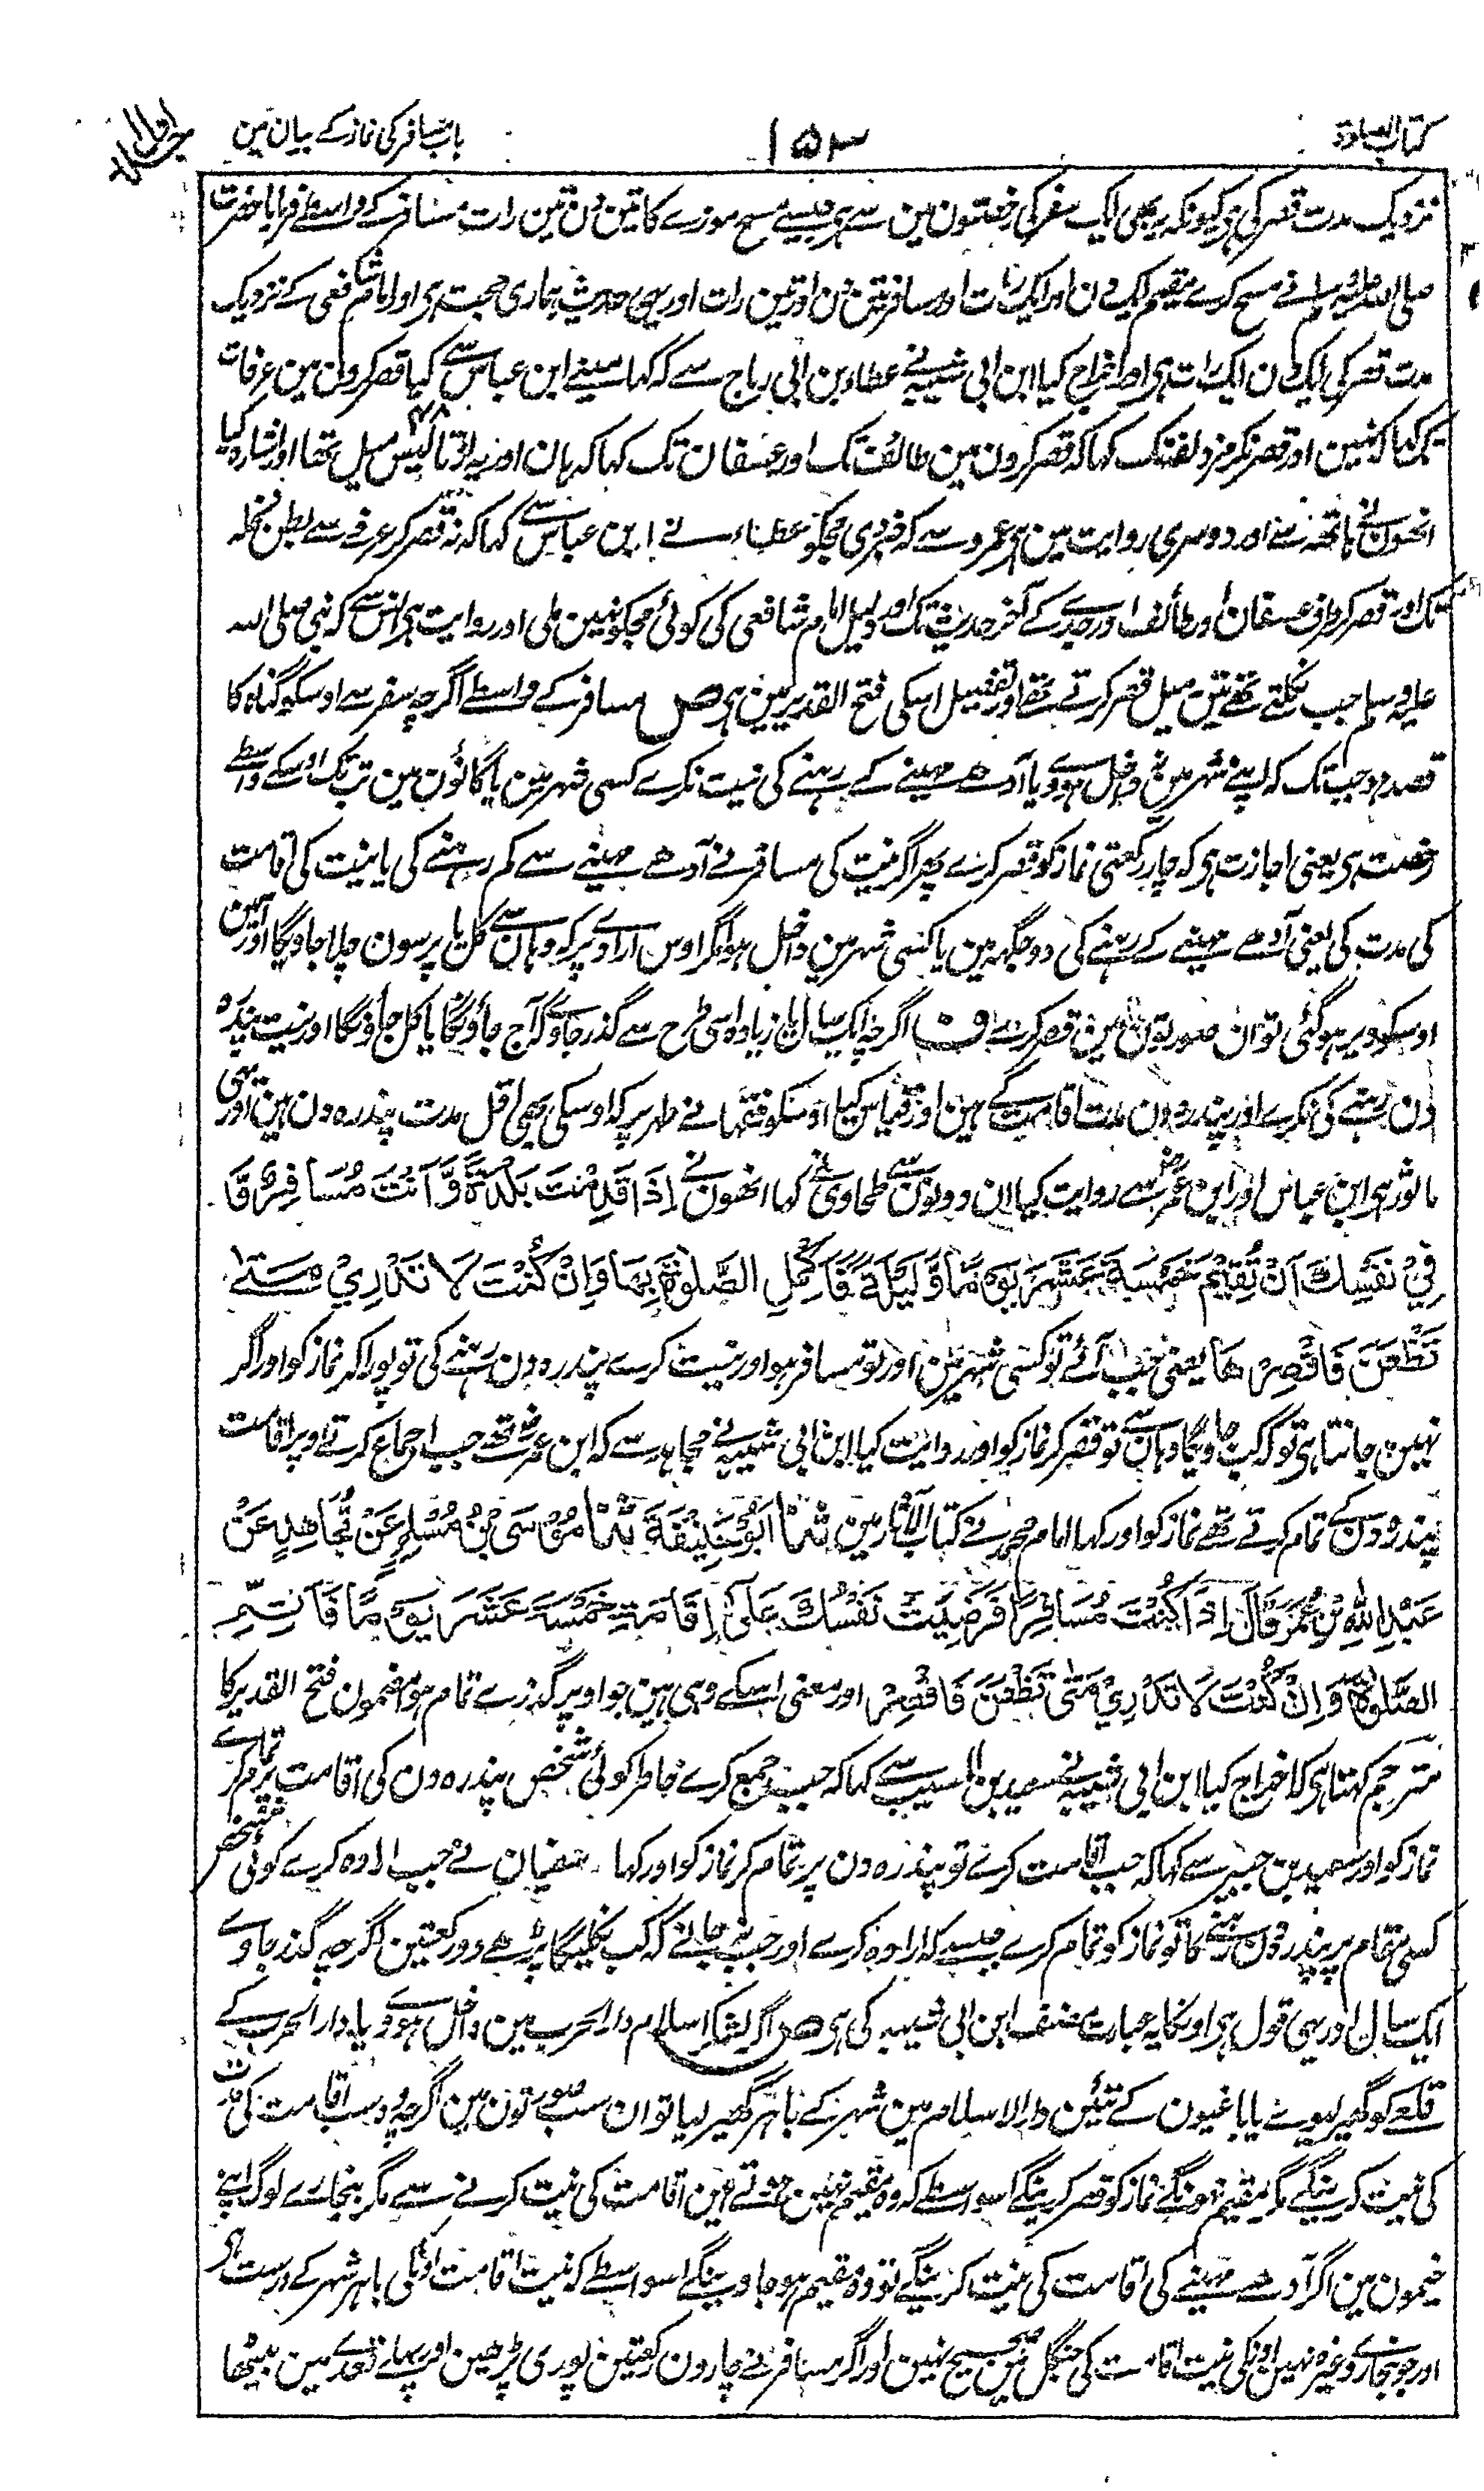 کتاب الصلوٰة
۱۵۳
باب مسافر کی نماز کے بیان مین
جلد اول
نزدیک مدت قصر کی ہی کیونکہ یہ بھی ایک سفر کی رخصتون مین سے ہی جیسے مسح موزے کا تین دن تین رات مسافر کے واسطے فرمایا حضرت
صلی اللہ علیہ وسلم نے مسح کرے مقیم ایک دن اور ایک رات اور مسافر تین دن اور تین رات اور یہی حدیث ہماری حجت ہی اور امام شافعی کے نزدیک
مدت قصر کی ایک دن ایک رات ہی اور اخراج کیا ابن ابی شیبہ نے عطاء بن ابی رباح سے کہ کہا مینے ابن عباس سے کیا قصر کرون مین عرفات
تک کہا کہ نہین اور قصر نکر مزدلفہ تک کہا کہ قصر کرون مین طائف تک اور عسفان تک کہا کہ ہان اور یہ اڑتالیس ۴۸ میل تھا اور اشارہ کیا
انھون نے ہاتھ سے اور دوسری روایت مین ہی عمرو سے کہ خبر دی مجکو عطاء نے ابن عباس سے کہا کہ نہ قصر کر عرفے سے بطن نخلہ
تک اور قصر کر طرف عسفان اور طائف اور جدے کے آخر حدیث تک اور دلیل امام شافعی کی کوئی مجکو نہین ملی اور روایت ہی انس سے کہ نبی صلی اللہ
علیہ وسلم جب نکلتے تھے تین میل قصر کرتے تھے اور تفصیل اسکی فتح القدیر مین ہی ص مسافر کے واسطے اگرچہ سفر سے اوسکو گناہ کا
قصد ہو جب تک کہ اپنے شہر مین نہ داخل ہووے یا آدھے مہینے کے رہنے کی نیت نکرے کسی شہر مین یا گانون مین تب تک اوسکے واسطے
رخصت ہی یعنی اجازت ہی کہ چار رکعتی نماز کو قصر کرے پھر اگر نیت کی مسافر نے آدھے مہینے سے کم رہنے کی یا نیت کی اقامت
کی مدت کی یعنی آدھے مہینے کے رہنے کی دو جگہہ مین یا کسی شہر مین داخل ہوا مگر اوس ارادے پر کہ وہان سے کل یا پرسون چلا جاویگا اور اسمین
اوسکو دیر ہو گئی تو ان صورتون مین قصر کرے ف اگرچہ ایک سال یا زیادہ اسی طرح سے گذر جاوے کہ آج جاؤنگا یا کل جاؤنگا اور نیت پندرہ
دن رہنے کی نکرے اور پندرہ دن مدت اقامت کے ہین اور قیاس کیا اوسکو فقہا نے طہر پر کہ اوسکی بھی اقل مدت پندرہ دن ہین اور یہی
ماثور ہی ابن عباس اور ابن عمر سے روایت کیا ان دونون سے طحاوی نے کہا انھون نے اِذَا قَدِمْتَ بَلْدَةً وَّ اَنْتَ مُسَافِرٌ وَّ
فِيْ نَفْسِكَ اَنْ تُقِيْمَ خَمْسَةَ عَشَرَ يَوْمًا وَّ لَيْلَةً فَاَكْمِلِ الصَّلٰوةَ بِهَا وَاِنْ كُنْتَ لَا تَدْرِيْ مَتٰى
تَظْعَنُ فَاقْصِرْهَا یعنی جب آئے تو کسی شہر مین اور تو مسافر ہو اور نیت کرے پندرہ دن رہنے کی تو پورا کر نماز کو اور اگر
نہین جانتا ہی تو کہ کب جاویگا وہان سے تو قصر کر نماز کو اور روایت کیا ابن ابی شیبہ نے مجاہد سے کہ ابن عمر تھے جب اجماع کرتے اوپر اقامت
پندرہ دن کے تمام کرتے تھے نماز کو اور کہا امام محمد نے کتاب الآثار مین ثَنَا اَبُوْ حَنِيْفَةَ ثَنَا مُوْسَى بْنُ مُسْلِمٍ عَنْ مُّجَاهِدٍ عَنْ
عَبْدِ اللّٰهِ بْنِ عُمَرَ قَالَ اِذَا كُنْتَ مُسَافِرًا فَرَضِيَتْ نَفْسُكَ عَلٰى اِقَامَةِ خَمْسَةَ عَشَرَ يَوْمًا فَاَتِمِّ
الصَّلٰوةَ وَاِنْ كُنْتَ لَا تَدْرِيْ مَتٰى تَظْعَنُ فَاقْصِرْ اور معنی اسکے وہی ہین جو اوپر گذرے تمام ہوا مضمون فتح القدیر کا
مترجم کہتا ہی کہ اخراج کیا ابن ابی شیبہ نے سعید بن المسیب سے کہا کہ جب جمع کرے خاطر کوئی شخص پندرہ دن کی اقامت پر تمام کرے
نماز کو اور سعید بن جبیر سے کہا کہ جب اقامت کرے تو پندرہ دن پر تمام کر نماز کو اور کہا سفیان نے جب ارادہ کرے کوئی شخص
کسی مقام پر پندرہ دن رہنے کا تو نماز کو تمام کرے جیسے کہ ارادہ کرے اور جب نہ جانے کہ کب نکلیگا پڑھے دو رکعتین اگرچہ گذر جاوے
ایک سال اور یہی قول ہی اونکا یہ عبارت مصنف ابن ابی شیبہ کی ہی ص اگر لشکر اسلام دار الحرب مین داخل ہووے یا دار الحرب کے
قلعے کو گھیر لیوے یا باغیون کے تئین دار الاسلام مین شہر کے باہر گھیر لیا تو ان سب صورتون مین اگرچہ وہ سب اقامت کی مدت
کی نیت کرینگے مگر مقیم نہونگے نماز کو قصر کرینگے اسواسطے کہ وہ مقیم نہین ہوتے ہین اقامت کی نیت کرنے سے مگر بنجارے لوگ اپنے
خیمون مین اگر آدھے مہینے کی اقامت کی نیت کرینگے تو وہ مقیم ہو جاوینگے اسواسطے کہ نیت اقامت اونکی باہر شہر کے درست ہی
اور جو بنجارے وغیرہ نہین اونکی نیت اقامت کی جنگل مین صحیح نہین اور اگر مسافر نے چارون رکعتین پوری پڑھین اور پہلے قعدے مین بیٹھا